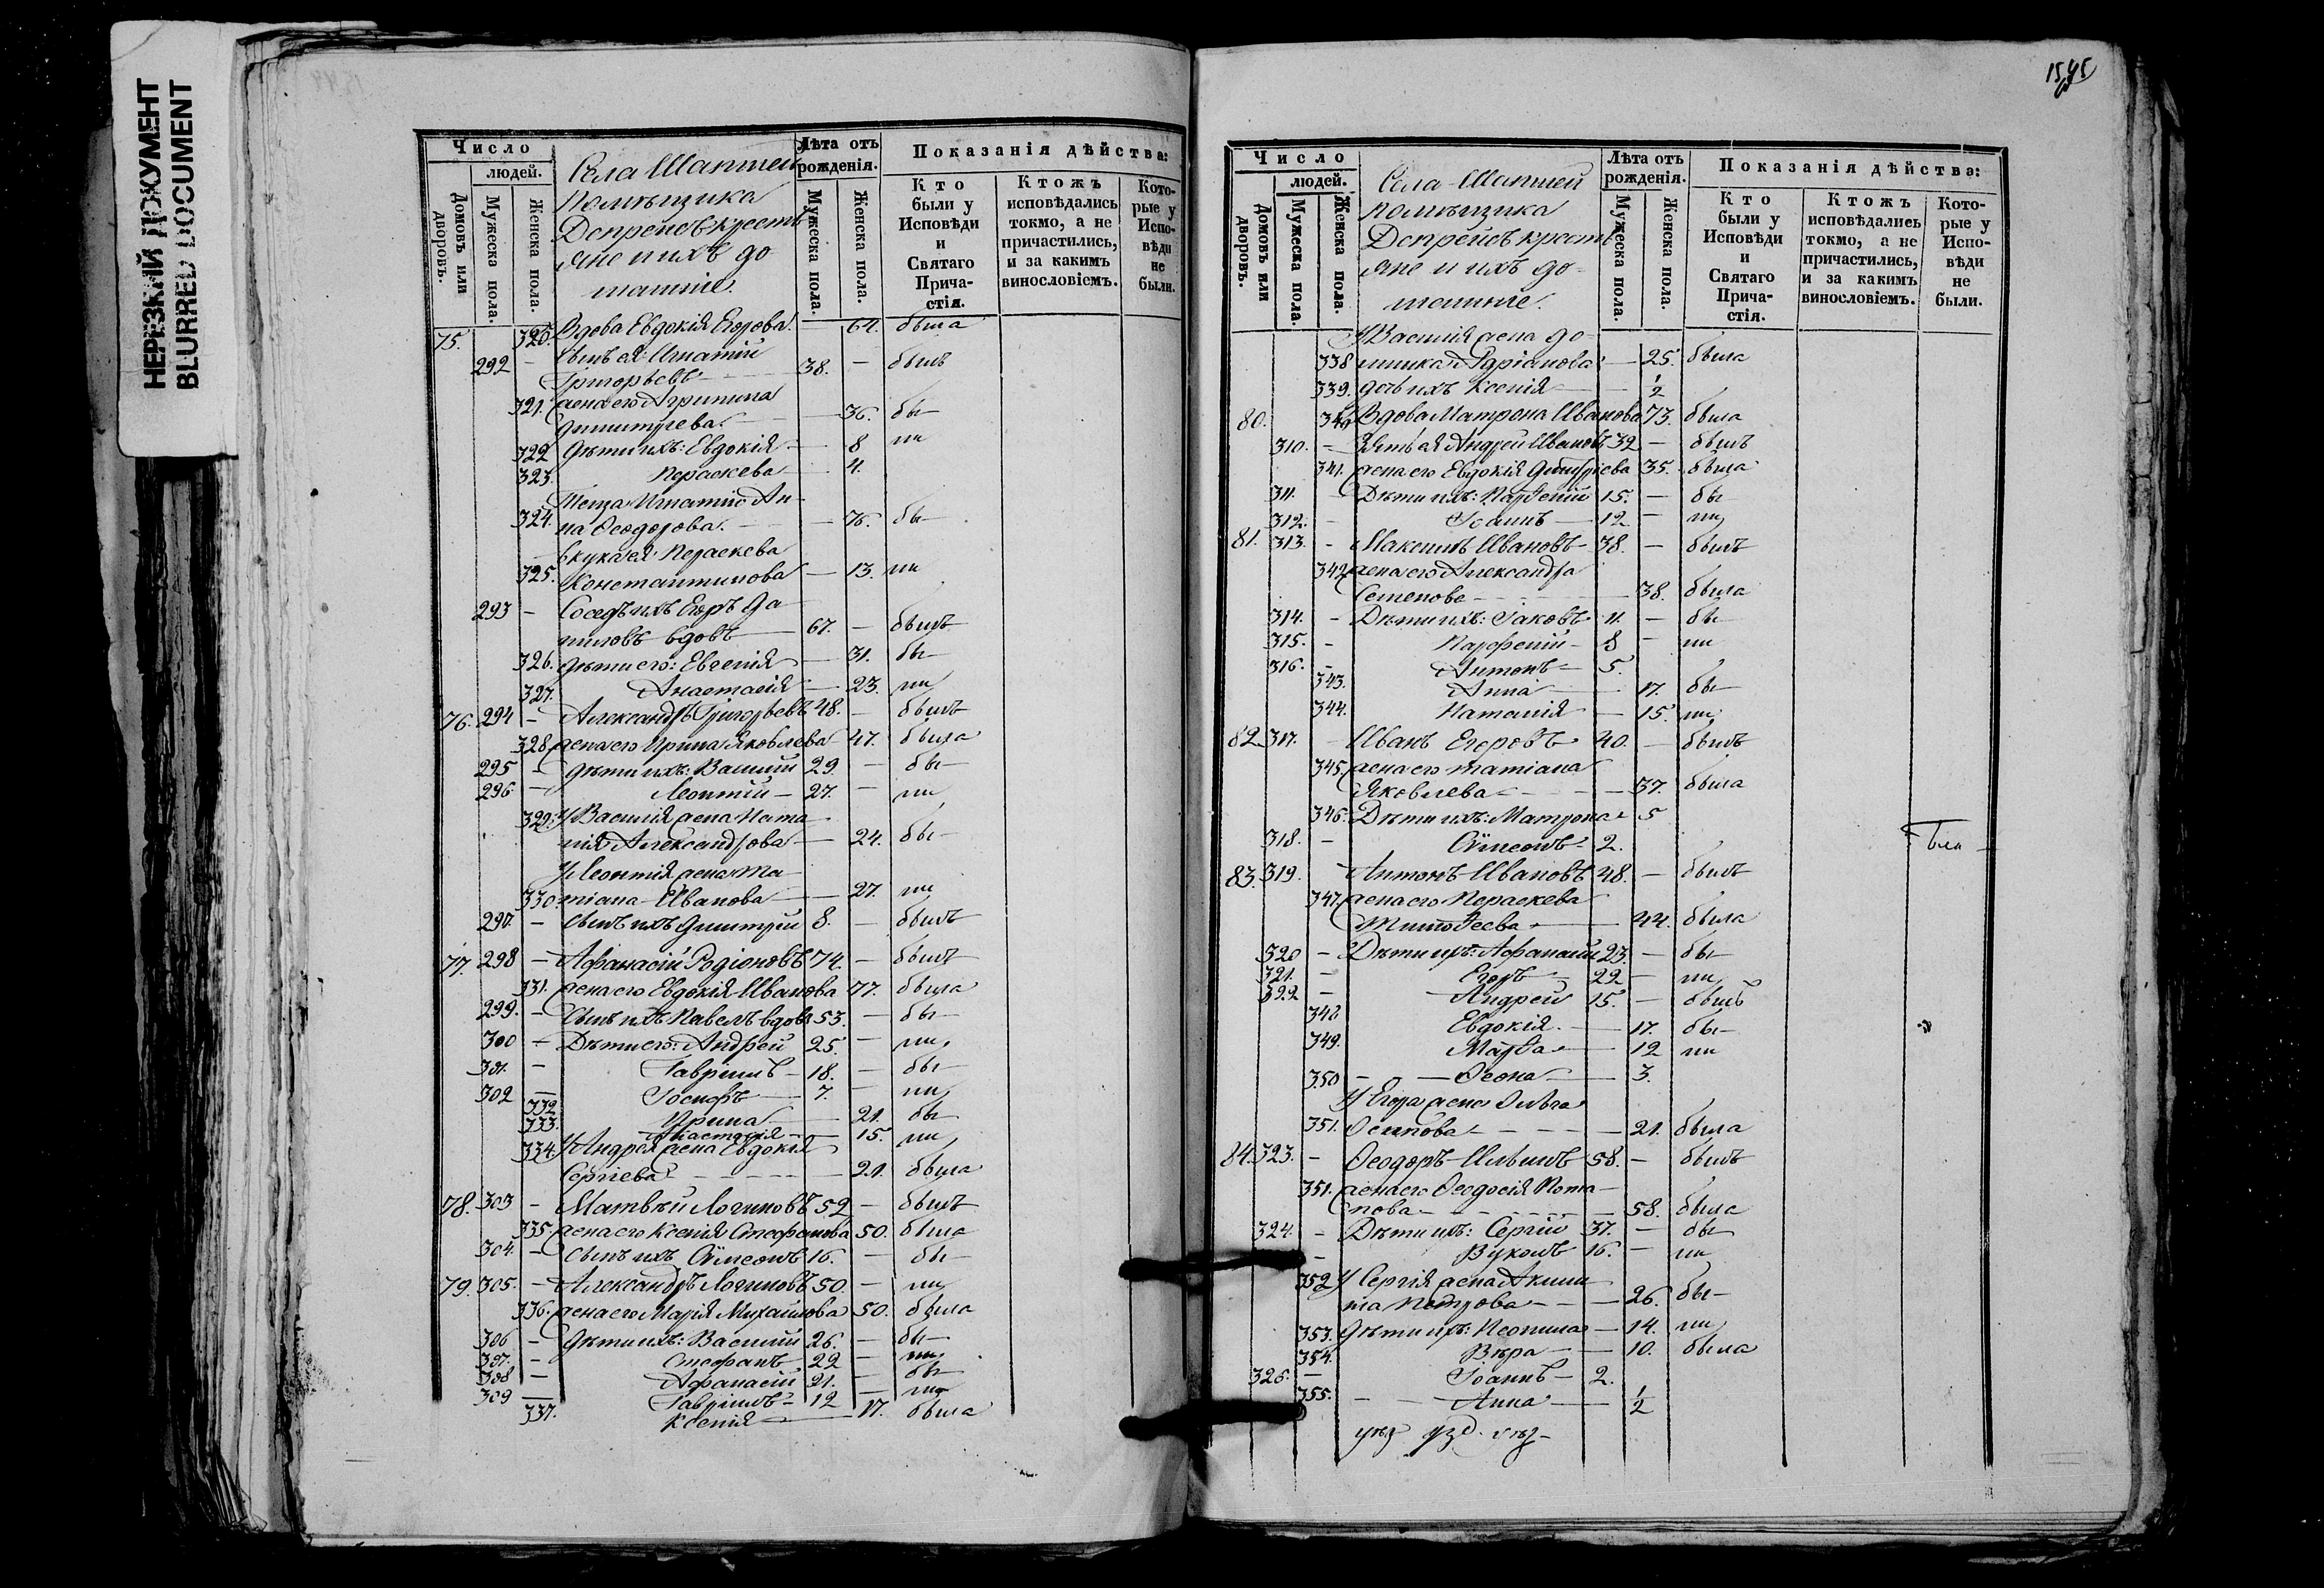 НЕРЕЗКИЙ ДОКУМЕНТ
BLURRED DOCUMENT
Число
людей.
Домовъ или дворовъ.
Мужеска пола.
Женска пола.
Села Шаптей
помѣщика
крестья
яне и ихъ до-
машніе.
Лѣта отъ рожденія.
Мужеска пола.
Женска пола.
Показанія дѣйства:
Кто были у Исповѣди и Святаго Прича-стія.
Ктожъ исповѣдались токмо, а не причастились, и за какимъ винословіемъ.
Кото-рые у Испо-вѣди не были.
75. 320. Вдова Евдокія Егорова. — 64. была
292 — Сынъ ея: Игнатій
Григорьевъ 38. — былъ
321. жена его Агрипина
Димитріева — 36. бы—
322 дѣти ихъ: Евдокія — 8 ли
323. Параскева — 4.
Теща Игнатія Ан-
324. на Ѳеодорова. — 76. бы—
внука ея Параскева
325. Константинова — 13. ли
293 — Соседъ ихъ Егоръ Да-
ниловъ вдовъ 67. — былъ
326. дѣти его: Евгенія — 31. бы—
327. Анастасія — 23. ли
76. 294 — Александръ Григорьевъ 48. — былъ
328 жена его Ирина Яковлева 47. была
295 — дѣти ихъ: Василій 29. — бы—
296 — Леонтій — 27. — ли
329. У Василія жена Ната-
лія Александрова — 24. бы—
У Леонтія жена Та-
330. тіана Иванова — 27. ли
297. — Сынъ ихъ Димитрій 8. — былъ
77. 298 — Афанасій Родіоновъ 74. — былъ
331. жена его Евдокія Иванова 77. была
299. — Сынъ ихъ Павелъ вдовъ 53. — бы—
300 — Дѣти его: Андрей 25. — ли
301. — Гавріилъ — 18. — бы—
302 — Іосифъ — 7. — ли
332 Ирина — 21. бы—
333. Анастасія — 15. ли
334. У Андрея жена Евдокія
Сергіева — 21. была
78. 303 — Матвѣй Логиновъ 52 — былъ
335. жена его Ксенія Стефанова 50. была
304. — Сынъ ихъ Сѷмеонъ 16. — бы—
79. 305. — Александръ Логиновъ 50. — ли
336. жена его Марія Михайлова 50. была
306 — дѣти ихъ: Василій 26. — бы—
307. — Стефанъ 22 — ли
308 — Афанасій 21. — бы—
309 — Гавріилъ — 12 — ли
337. Ксенія — 17. была
1545
Число
людей.
Домовъ или дворовъ.
Мужеска пола.
Женска пола.
Села Шаптей
помѣщика
крестья
яне и ихъ до-
машніе.
Лѣта отъ рожденія.
Мужеска пола.
Женска пола.
Показанія дѣйства:
Кто были у Исповѣди и Святаго Прича-стія.
Ктожъ исповѣдались токмо, а не причастились, и за какимъ винословіемъ.
Кото-рые у Испо-вѣди не были.
У Василія жена До-
338 мника Адріанова — 25. была
339. дочь ихъ Ксенія — 1/2
80. 340 Вдова Матрона Иванова 73. была
310. — Зять ея Андрей Ивановъ 39 — былъ
341. жена его Евдокія Димитріева 35. была
311. — Дѣти ихъ: Парѳеній 15. — бы
312. — Іоаннъ — 12 — ли
81. 313. — Максимъ Ивановъ — 38. — былъ
342 жена его Александра
Семенова — 38. была
314. — Дѣти ихъ: Іаковъ 11. — бы—
315. — Парфеній — 8 — ли
316. — Антонъ — 5.
343. Анна — 17. бы—
344. Наталія — 15. ли
82. 317. — Иванъ Егоровъ 40. — былъ
345. жена его Татіана
Яковлева — 37. была
346. Дѣти ихъ: Матрона 5
318. — Сѷмеонъ 2.
83. 319. Антонъ Ивановъ 48. — былъ
347. жена его Параскева
Тимоѳеева — 44. была
320 — Дѣти ихъ: Афанасій 23. — бы—
321. — Егоръ — 22 — ли
322 — Андрей 15. — былъ
348 Евдокія — 17. бы—
349. Марѳа — 12 ли
350 — Ѳеона — 3.
У Егора жена Ольга
351. Осипова — 21. была
84. 323. — Ѳеодоръ Ильинъ 58. — былъ
351. жена его Ѳеодосія Пота-
пова — 58. была
324. — Дѣти ихъ: Сергій 37. — бы
— Вуколъ 16. — ли
352 У Сергія жена Акили-
на Петрова — 26. бы—
353. дѣти ихъ: Неонила — 14. ли
354. Вѣра — 10. была
326. — Іоаннъ — 2.
355. — Анна — 1/2